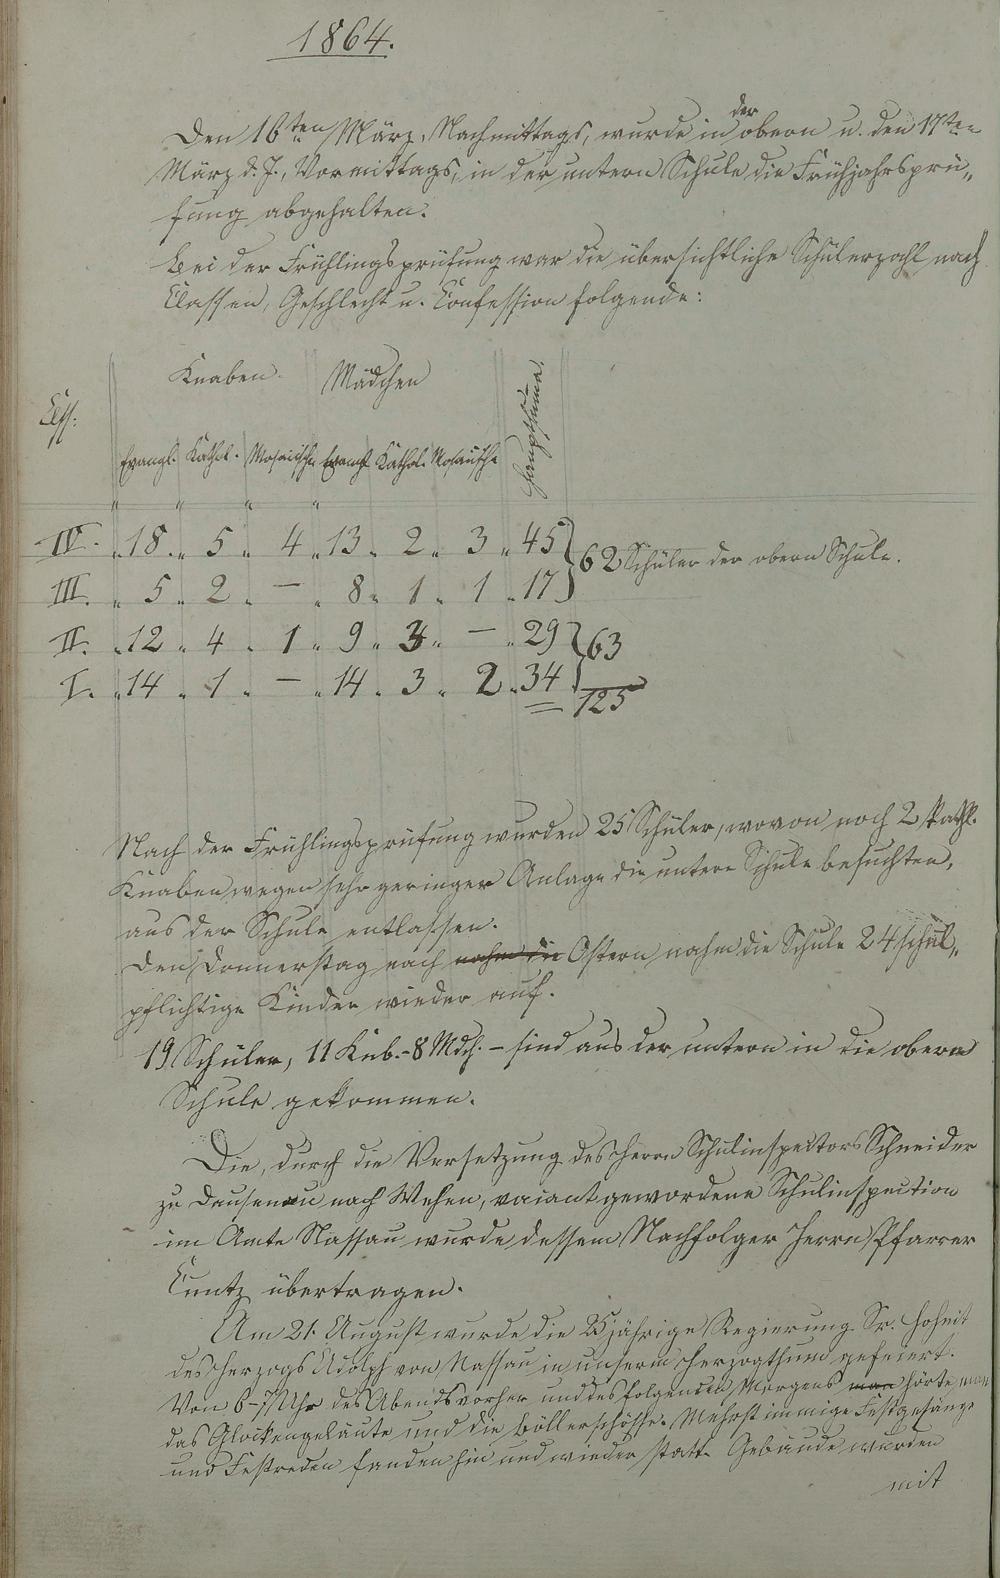 1864.
Den 16ten März, Nachmittags, wurde in der obern u. den 17ten
März d. J., Vormittags, in der untern Schule die Frühjahrsprü„
fung abgehalten.
Bei der Frühlingsprüfung war die übersichtliche Schülerzahl nach
Classen, Geschlecht u. Confession folgende:
Knaben. Mädchen Hauptsuma.
Clss.
Evangl. Kathol. Mosaische Evangl Kathol. Mosaische
" " " "
IV. " 18. " 5 " 4 " 13 " 2 " 3 " 45 } 62 Schüler der obern Schule.
III. " 5 " 2 " – " 8 " 1 " 1 " 17
II. " 12 " 4 " 1 " 9 " 3 " – " 29 } 63
I. " 14 " 1 " – " 14 " 3 " 2 " 34
125
Nach der Frühlingsprüfung wurden 25 Schüler, wovon noch 2 kathl.
Knaben wegen sehr geringer Anlage die untere Schule besuchten,
aus der Schule entlassen.
Den Donnerstag nach nahm die Ostern nahm die Schule 24 schul„
pflichtige Kinder wieder auf.
19 Schüler, 11 Knb. – 8 Mdch. – sind aus der untern in die obere
Schule gekommen.
Die, durch die Versetzung des Herrn Schulinspectors Schneider
zu Dausenau nach Wehen, vacant gewordene Schulinspection
im Amte Nassau wurde dessem Nachfolger Herrn Pfarrer
Cuntz übertragen.
Am 21. August wurde die 25jährige Regierung Sr. Hoheit
des Herzogs Adolph von Nassau in unserm Herzogthum gefeiert.
Von 6–7 Uhr des Abends vorher und des folgenden Morgens man hörte man
das Glockengeläute und die Böllerschöße. Mehrstimmige Festgesänge
und Festreden fanden hin und wieder statt. Gebäude wurden
mit